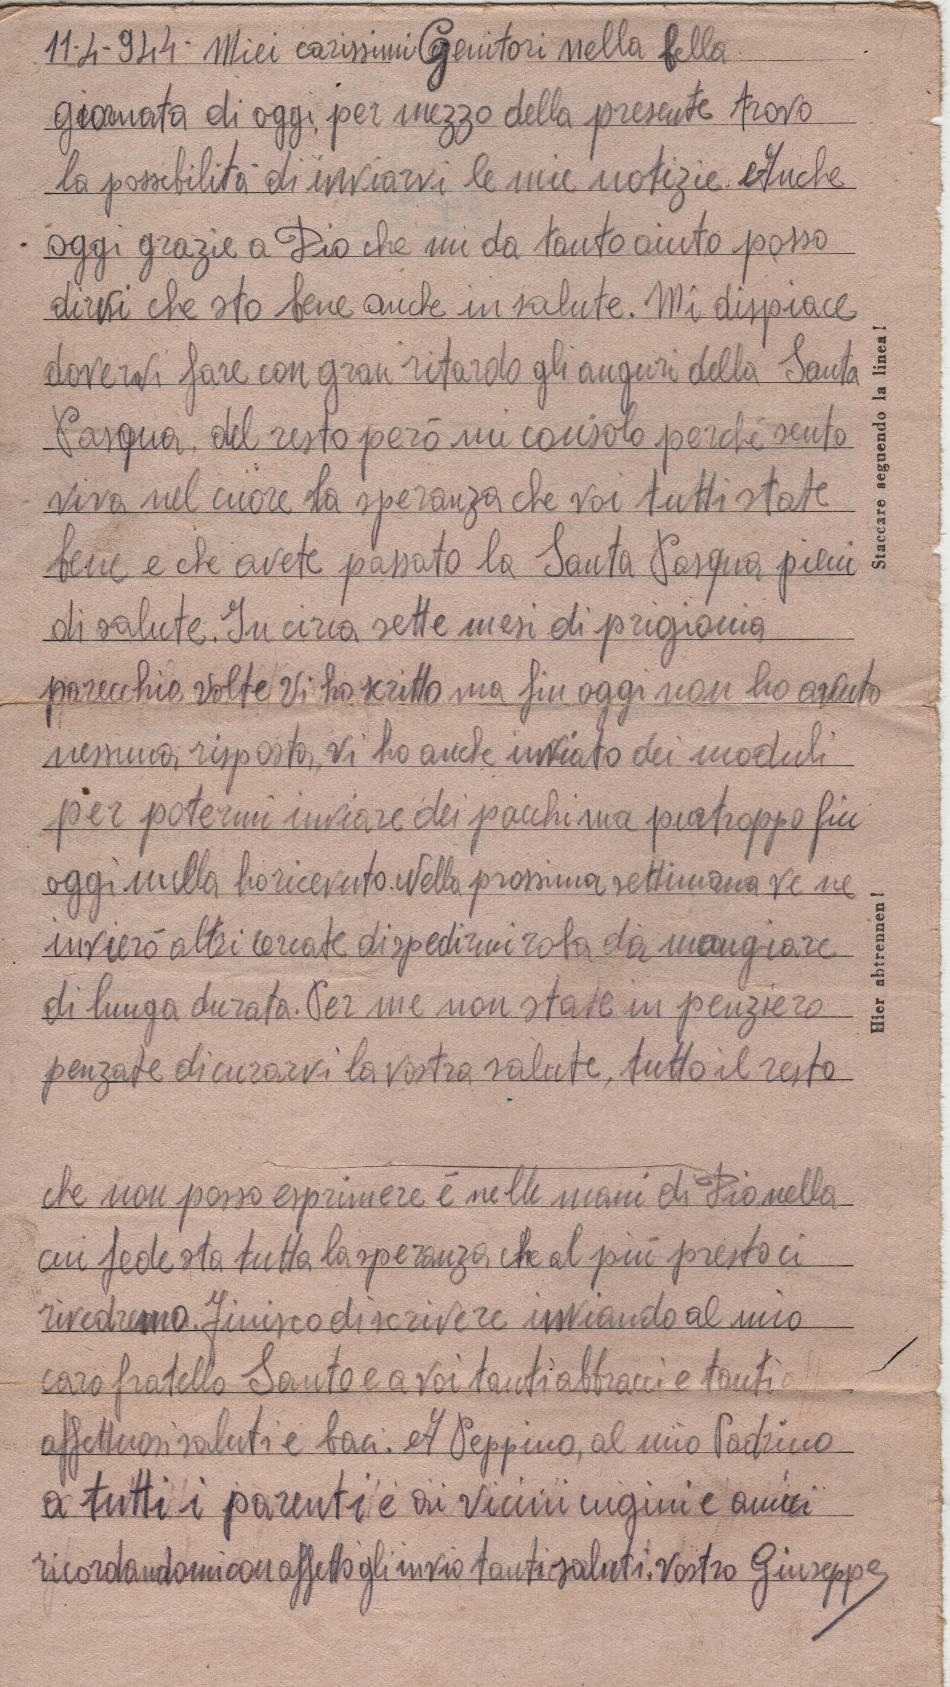 11-4-944- Miei carissimi Genitori nella bella
giornata di oggi per mezzo della presente trovo
la possibilità di inviarvi le mie notizie. Anche
oggi grazie a Dio che mi da tanto aiuto posso
dirvi che sto bene anche in salute. Mi dispiace
dovervi fare con gran ritardo gli auguri della Santa
Pasqua, del resto però mi consolo perché sento
viva nel cuore la speranza che voi tutti state
bene e che avete passato la Santa Pasqua pieni
di salute. In circa sette mesi di prigionia
parecchie volte vi ho scritto ma fin oggi non ho avuto
nessuna risposta, vi ho anche inviato dei moduli
per potermi inviare dei pacchi ma purtroppo fin
oggi nulla ho ricevuto. Nella prossima settimana ve ne
invierò altri cercate di spedirmi roba da mangiare
di lunga durata. Per me non state in penziero
penzate di curarvi la vostra salute, tutto il resto
che non posso esprimere è nelle mani di Dio nella
cui fede sta tutta la speranza che al più presto ci
rivedremo. Finisco di scrivere inviando al mio
caro fratello Santo e a voi tanti abbracci e tanti
affettuosi saluti e baci. A Peppino, al mio Padrino
a tutti i parenti e ai vicini cugini e amici
ricordandomi con affetto gli invio tanti saluti. vostro Giuseppe
Staccare seguendo la linea!
Hier abtrennen!